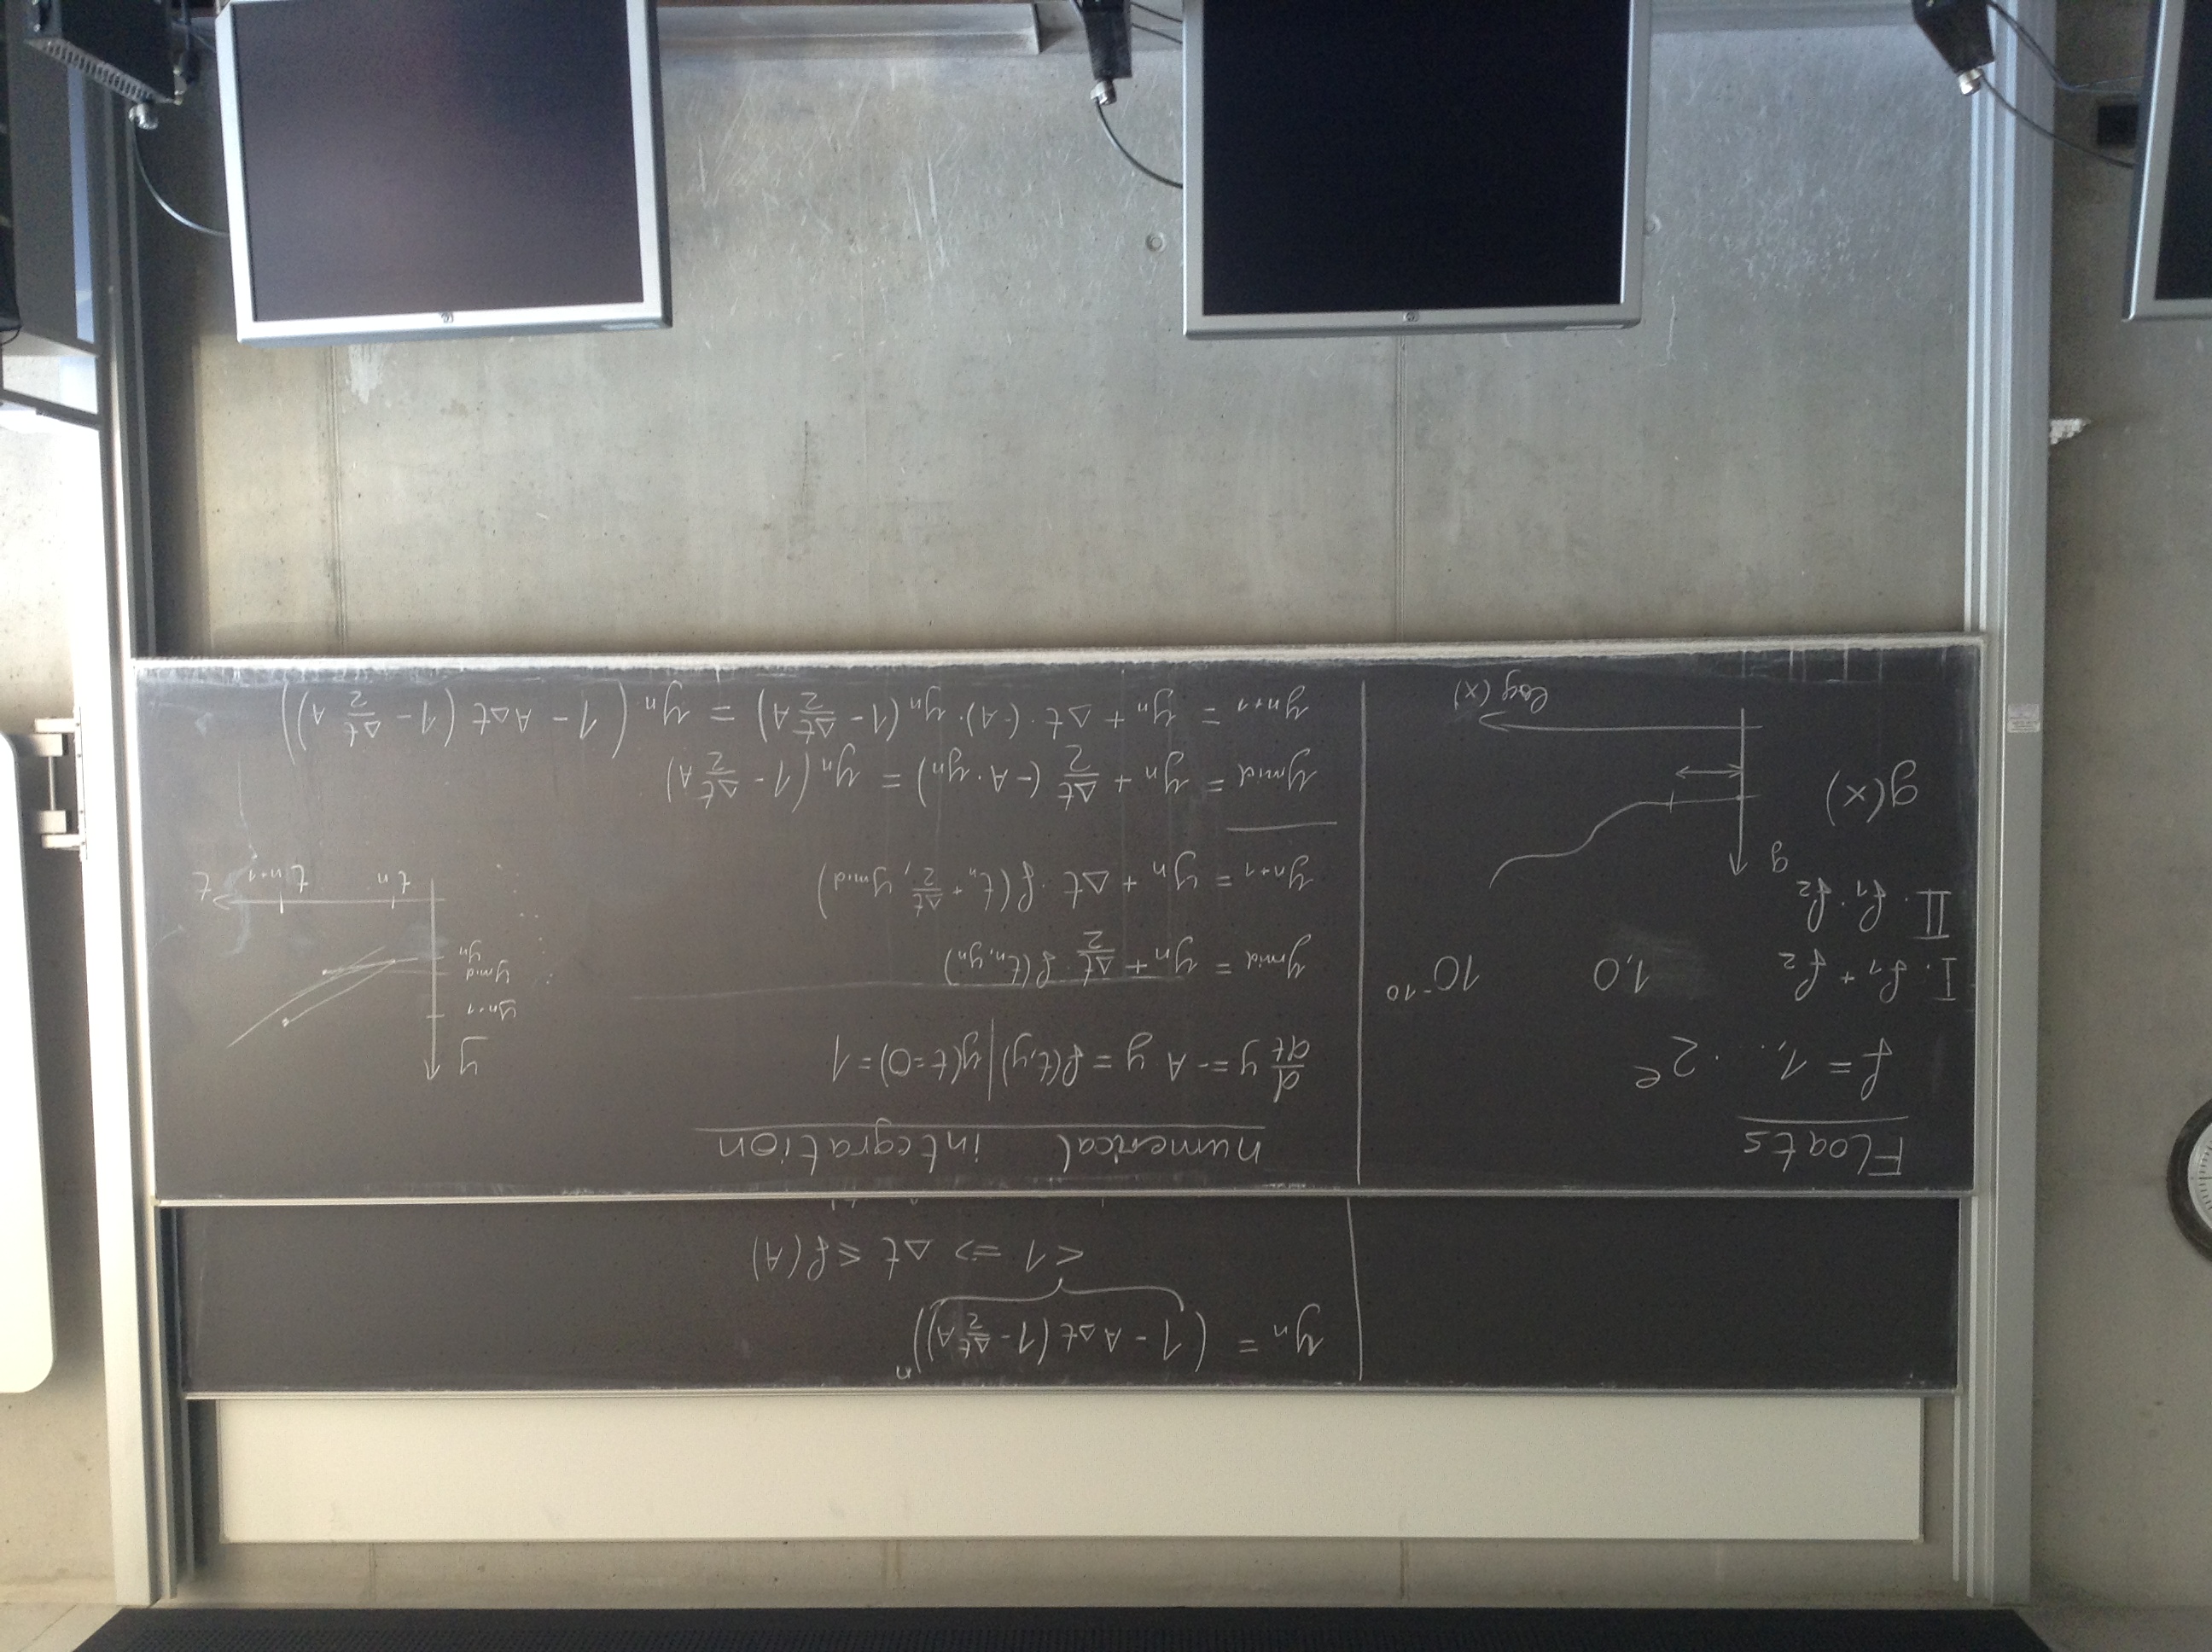 yₙ = (1 - A Δt (1 - Δt/2 A))ⁿ
< 1 => Δt ≤ f(A)
Floats
f = 1,... · 2ᵉ
I. f₁ + f₂ 1,0 10⁻¹⁰
II. f₁ · f₂
g
g(x)
log(x)
numerical integration
d/dt y = - A y = f(t,y) | y(t=0) = 1
y_mid = yₙ + Δt/2 · f(tₙ, yₙ)
yₙ₊₁ = yₙ + Δt · f(tₙ + Δt/2, y_mid)
y_mid = yₙ + Δt/2 (-A · yₙ) = yₙ (1 - Δt/2 A)
yₙ₊₁ = yₙ + Δt · (-A) · yₙ (1 - Δt/2 A) = yₙ (1 - A Δt (1 - Δt/2 A))
y
yₙ₊₁
y_mid
yₙ
tₙ tₙ₊₁ t